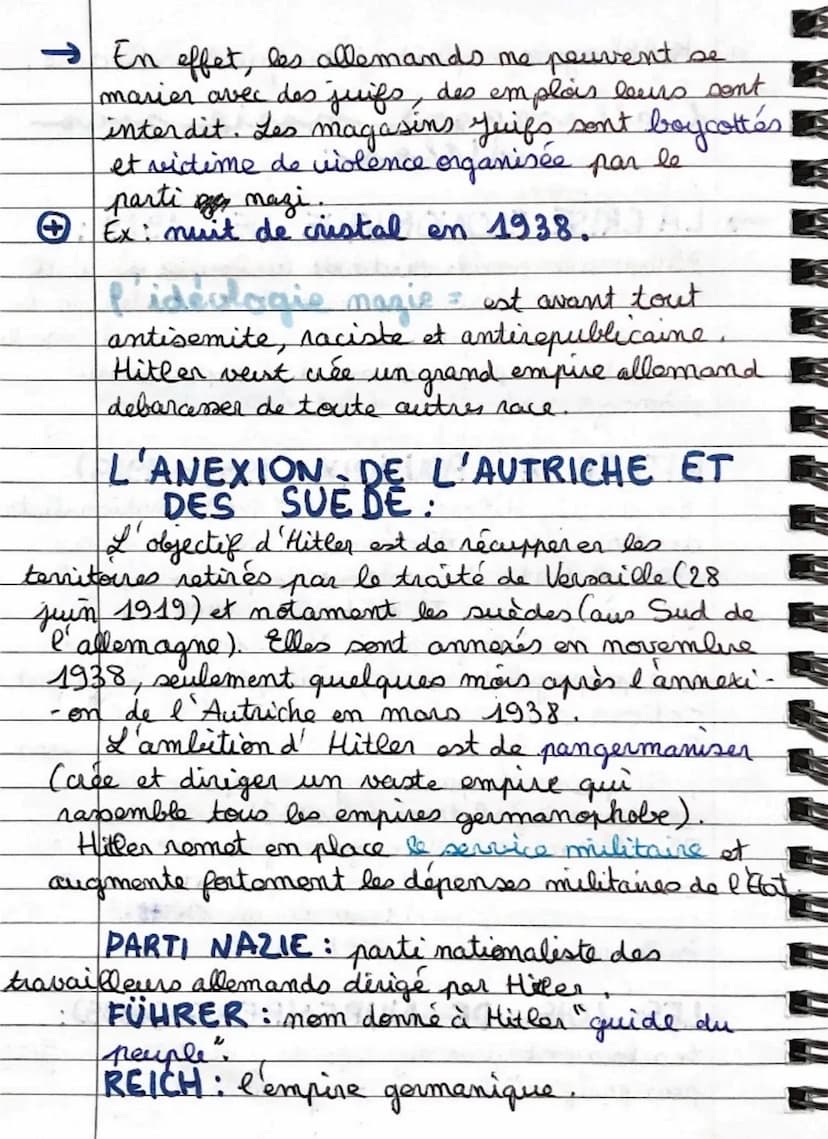 → En effet, les allemands ne peuvent se
marier avec des juifs, des emplois leurs sont
interdit. Les magasins juifs sont boycottés
et victime de violence organisée par le
parti nazi.
⊕ Ex : nuit de cristal en 1938.
l'idéologie nazie = est avant tout
antisemite, raciste et antirepublicaine.
Hitler veut crée un grand empire allemand
debarasser de toute autres race.
L'ANEXION DE L'AUTRICHE ET
DES SUEDE :
L'objectif d'Hitler est de récupperer les
territoires retirés par le traité de Versaille (28
juin 1919) et notament les suèdes (aus Sud de
l'allemagne). Elles sont annexés en novembre
1938, seulement quelques mois après l'annexi-
-on de l'Autriche en mars 1938.
L'ambition d' Hitler est de pangermaniser
(crée et diriger un vaste empire qui
rassemble tous les empires germanophobe).
Hitler remet en place le service militaire et
augmente fortement les dépenses militaires de l'Etat.
PARTI NAZIE : parti nationaliste des
travailleurs allemands dirigé par Hitler.
FÜHRER : nom donné à Hitler "guide du
peuple".
REICH : l'empire germanique.